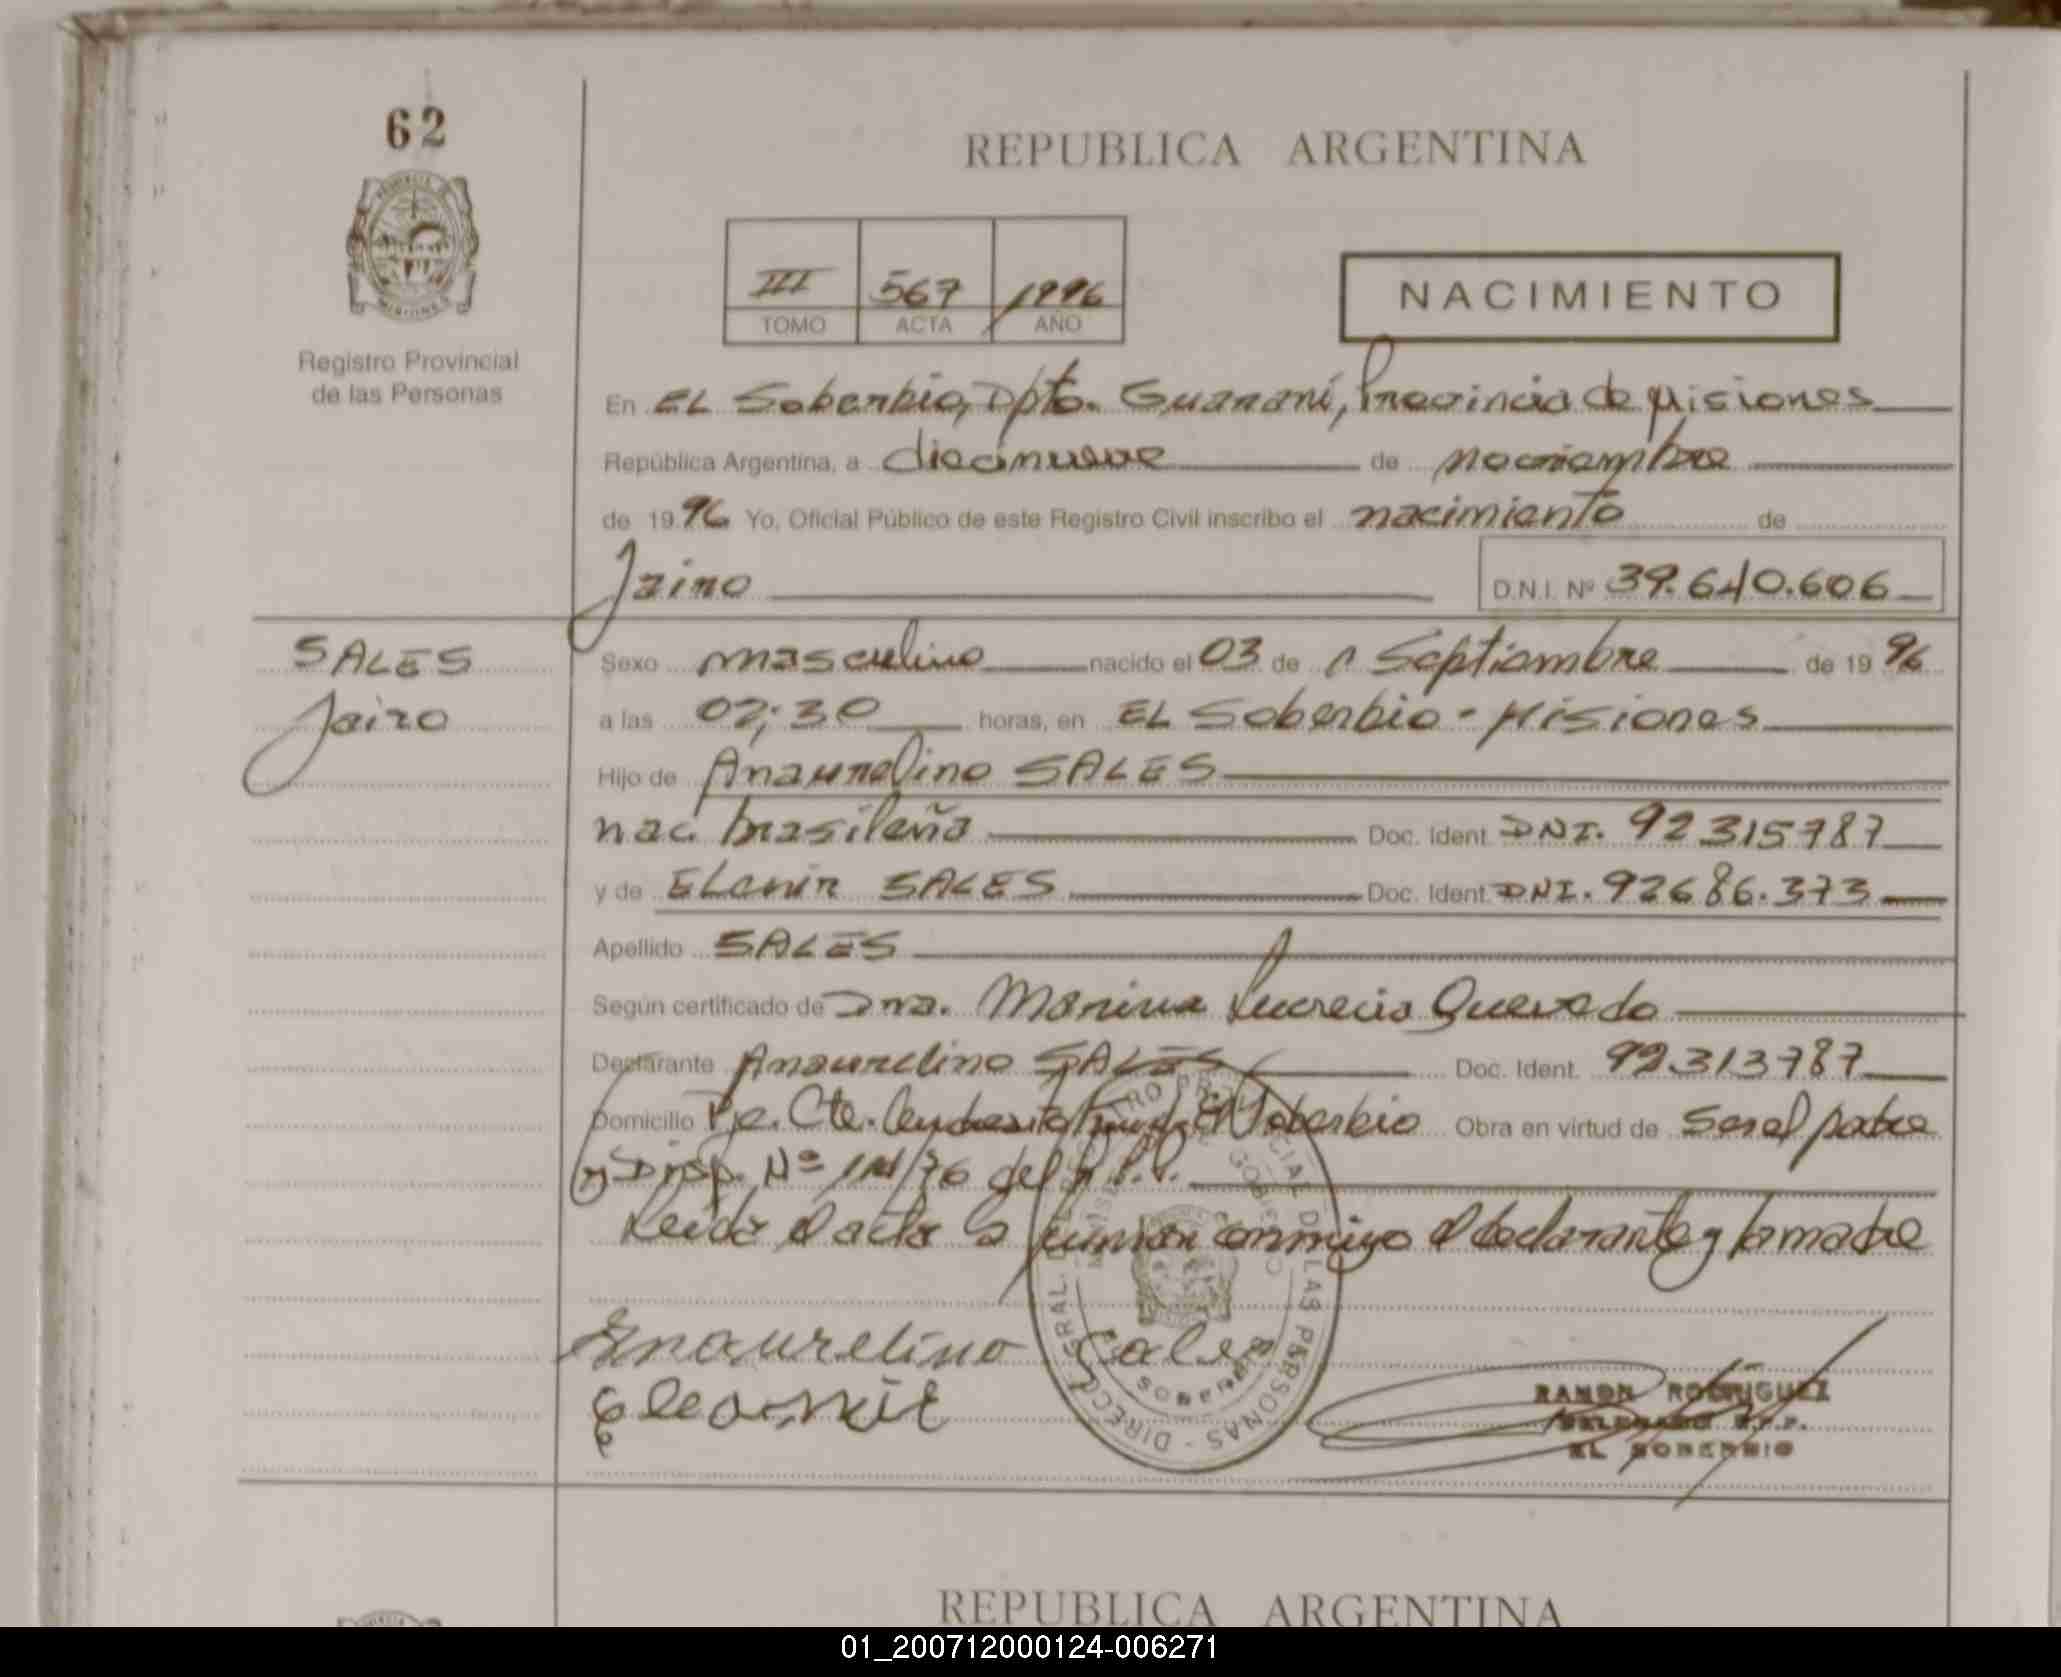 62
REPUBLICA ARGENTINA
PROVINCIA DE MISIONES
Registro Provincial
de las Personas
III 567 1996
TOMO ACTA AÑO
NACIMIENTO
En EL Soberbio, Dpto. Guaraní, Provincia de Misiones
República Argentina, a diecinueve de noviembre
de 1996 Yo, Oficial Público de este Registro Civil inscribo el nacimiento de
Jairo D.N.I. Nº 39.640.606
SALES
Jairo
Sexo masculino nacido el 03 de Septiembre de 1996
a las 02;30 horas, en EL Soberbio - Misiones
Hijo de Anaurelino SALES
nac. brasileña Doc. Ident. DNI. 92315787
y de ELenir SALES Doc. Ident. DNI. 92686.373
Apellido SALES
Según certificado de Dra. Marina Lucrecia Quevedo
Declarante Anaurelino SALES Doc. Ident. 92.313787
Domicilio Pje. Cte. El Soberbio Obra en virtud de Ser el padre
y Disp. Nº del R.P.P.
Leida el acta la firman conmigo el declarante y la madre
Anaurelino Sales
RAMON RODRIGUEZ
DELEGADO R.P.P.
EL SOBERBIO
DIRECC GRAL. DE LAS PERSONAS
SOBERBIO
REPUBLICA ARGENTINA
01_200712000124-006271